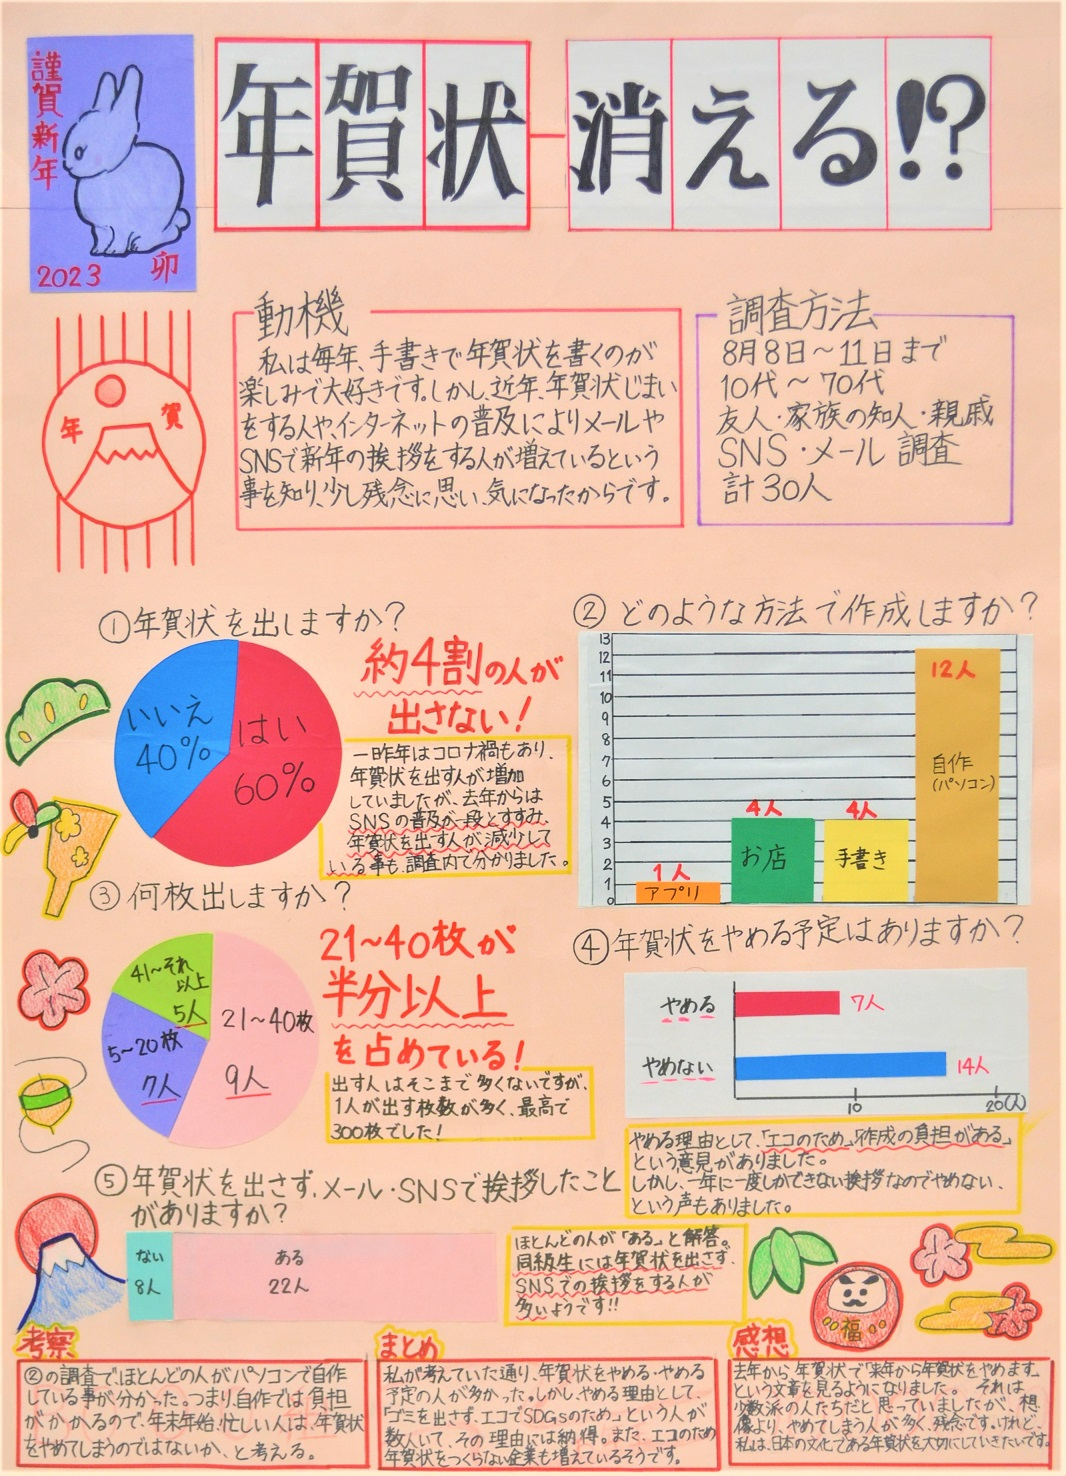 謹賀新年
2023 卯
年賀状 消える!?
年 賀
動機
私は毎年、手書きで年賀状を書くのが
楽しみで大好きです。しかし、近年、年賀状じまい
をする人や、インターネットの普及によりメールや
SNSで新年の挨拶をする人が増えているという
事を知り、少し残念に思い、気になったからです。
調査方法
8月8日～11日まで
10代～70代
友人・家族の知人・親戚
SNS・メール 調査
計30人
①年賀状を出しますか?
いいえ
40%
はい
60%
約4割の人が
出さない!
一昨年はコロナ禍もあり、
年賀状を出す人が増加
していましたが、去年からは
SNSの普及が一段とすすみ、
年賀状を出す人が減少して
いる事も、調査内で分かりました。
②どのような方法で作成しますか?
13
12
11
10
9
8
7
6
5
4
3
2
1
0
1人
アプリ
4人
お店
4人
手書き
12人
自作
(パソコン)
③何枚出しますか?
41～それ
以上
5人
5～20枚
7人
21～40枚
9人
21～40枚が
半分以上
を占めている!
出す人はそこまで多くないですが、
1人が出す枚数が多く、最高で
300枚でした!
④年賀状をやめる予定はありますか?
やめる
7人
やめない
14人
10
20(人)
やめる理由として、「エコのため」「作成の負担がある」
という意見がありました。
しかし、一年に一度しかできない挨拶なのでやめない、
という声もありました。
⑤年賀状を出さず、メール・SNSで挨拶したこと
がありますか?
ない
8人
ある
22人
ほとんどの人が「ある」と解答。
同級生には年賀状を出さず、
SNSでの挨拶をする人が
多いようです!!
福
考察
②の調査で、ほとんどの人がパソコンで自作
している事が分かった。つまり、自作では負担
がかかるので、年末年始、忙しい人は、年賀状
をやめてしまうのではないか、と考える。
まとめ
私が考えていた通り、年賀状をやめる・やめる
予定の人が多かった。しかし、やめる理由として、
「ゴミを出さず、エコでSDGsのため」という人が
数人いて、その理由には納得。また、エコのため
年賀状をつくらない企業も増えているそうです。
感想
去年から、年賀状で「来年から年賀状をやめます」
という文章を見るようになりました。 それは
少数派の人たちだと思っていましたが、想
像より、やめてしまう人が多く、残念です。けれど、
私は、日本の文化である年賀状を大切にしていきたいです。